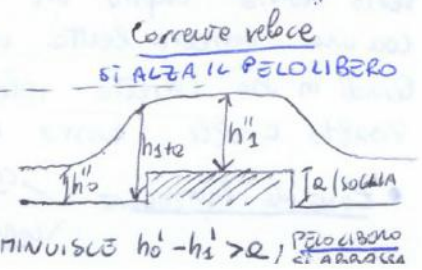 Corrente veloce
SI ALZA IL PELO LIBERO
h1+a
h1''
h0''
a (SOGLIA
MINUISCE h0' - h1' > a, PELO LIBERO
SI ABBASSA